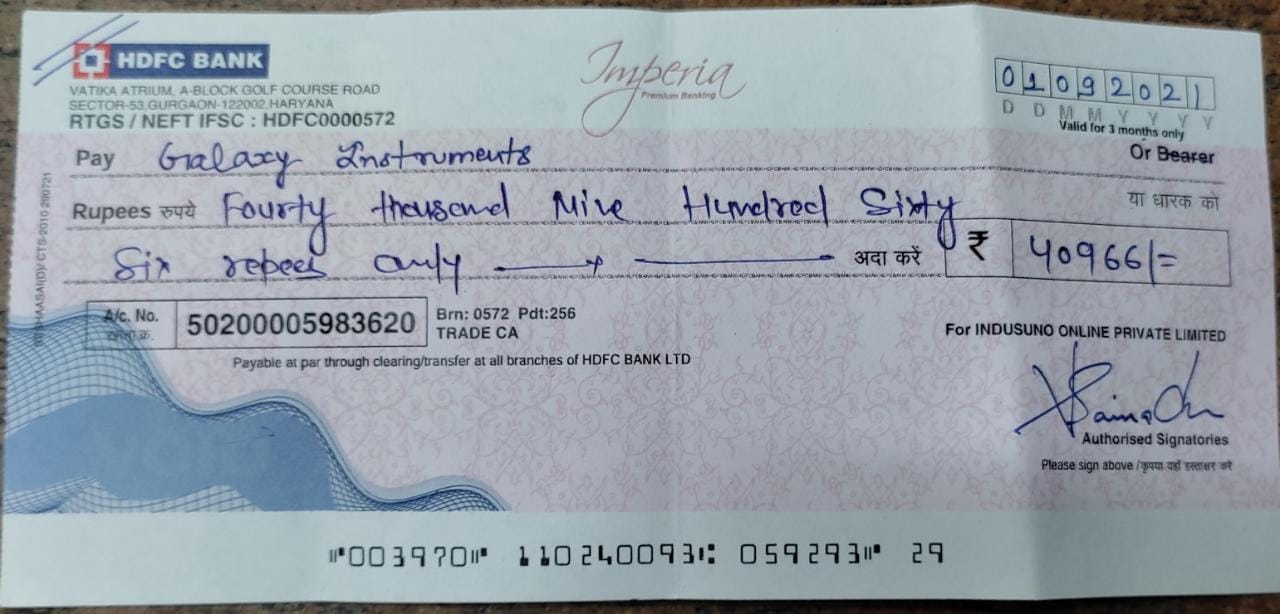 HDFC BANK
VATIKA ATRIUM, A-BLOCK GOLF COURSE ROAD
SECTOR-53,GURGAON-122002,HARYANA
RTGS / NEFT IFSC : HDFC0000572
Imperia
Premium Banking
01092021
D D M M Y Y Y Y
Valid for 3 months only
Pay Galaxy Instruments
Or Bearer
Rupees रुपये Fourty thousend Nine Hundred Sixty
या धारक को
Six repees only
अदा करें ₹ 40966/=
A/c. No. 50200005983620
Brn: 0572 Pdt:256
TRADE CA
For INDUSUNO ONLINE PRIVATE LIMITED
Payable at par through clearing/transfer at all branches of HDFC BANK LTD
Authorised Signatories
Please sign above / कृपया यहाँ हस्ताक्षर करें
⑈003970⑈ 110240093⑆ 059293⑈ 29